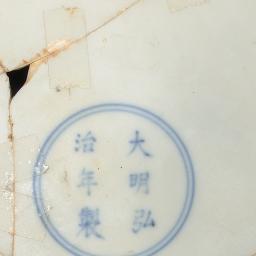 大明弘
治年製